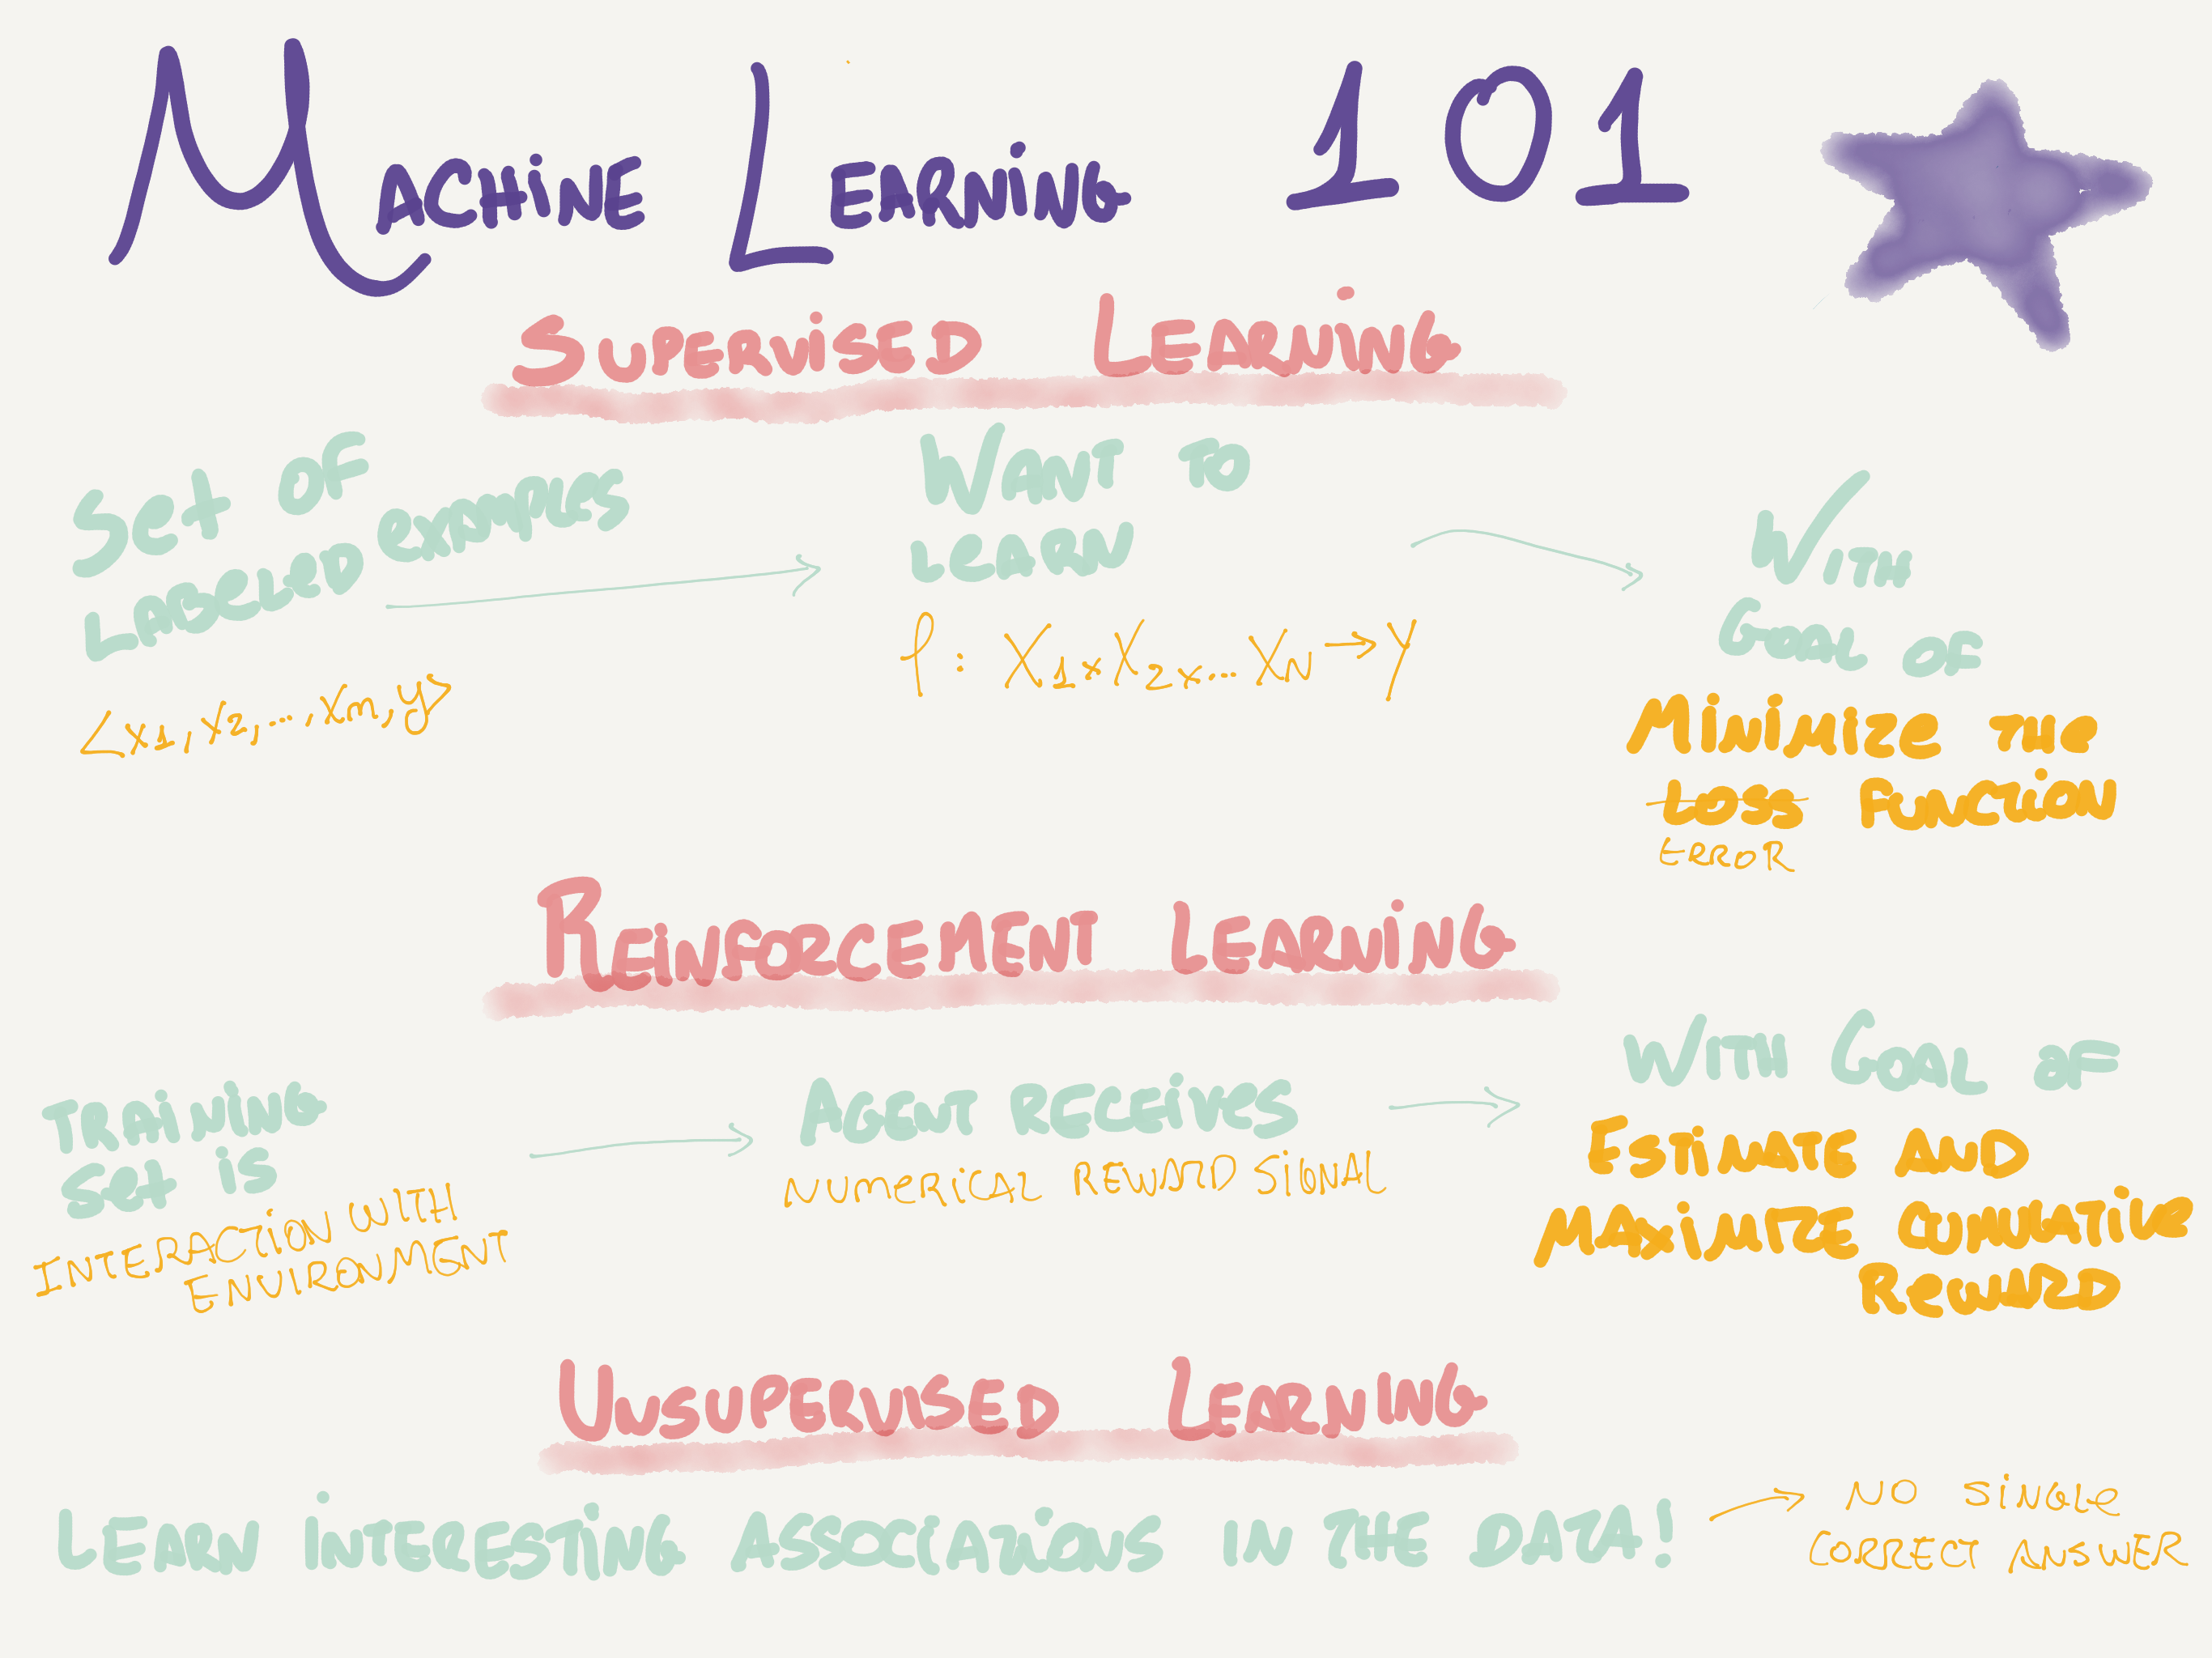 Machine Learning 101
Supervised Learning
Set of
Labeled examples
<x1, x2, ..., xm, y>
Want to
learn
f: X1 x X2 x ... XN → Y
With
Goal of
Minimize the
Loss Function
Error
Reinforcement Learning
Training
set is
Interaction with
Environment
Agent receives
numerical reward signal
With Goal of
Estimate and
Maximize cumulative
Reward
Unsupervised Learning
Learn interesting associations in the data!
No single
correct answer